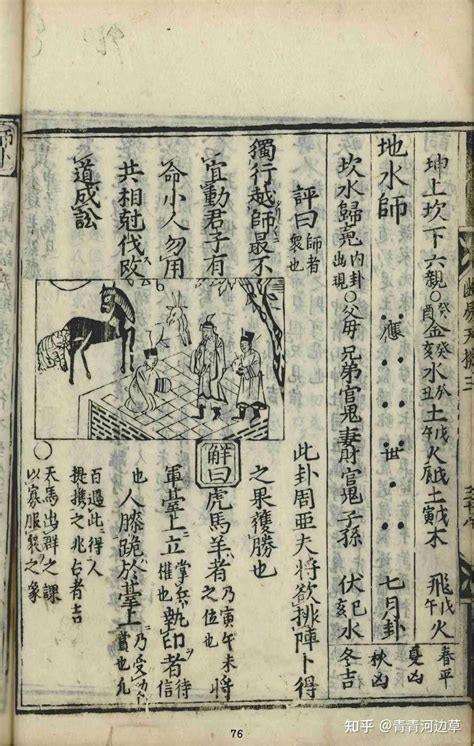 坤上坎下六親○癸酉金癸亥水癸丑土戊午火戊辰土戊寅木 飛戊午火 春平
地水師 應 世 七月卦 夏凶 秋凶
坎水歸䰟 內卦出現○父母兄弟官鬼妻財官鬼子孫 伏巳亥水 冬吉
評曰 師者衆也 此卦周亞夫將欲排陣卜得
之果獲勝也
獨行越師最不
宜動君子有
命小人勿用
共相尅伐改
道成訟
解曰虎馬羊者乃寅午未之位也將
軍臺上立掌兵權也執印者信待
也人膝跪於臺上乃受功賞也凡
百遇此得人
提携之兆占者吉
○天馬出群之課
以寡服衆之象
76
知乎 @青青河边草